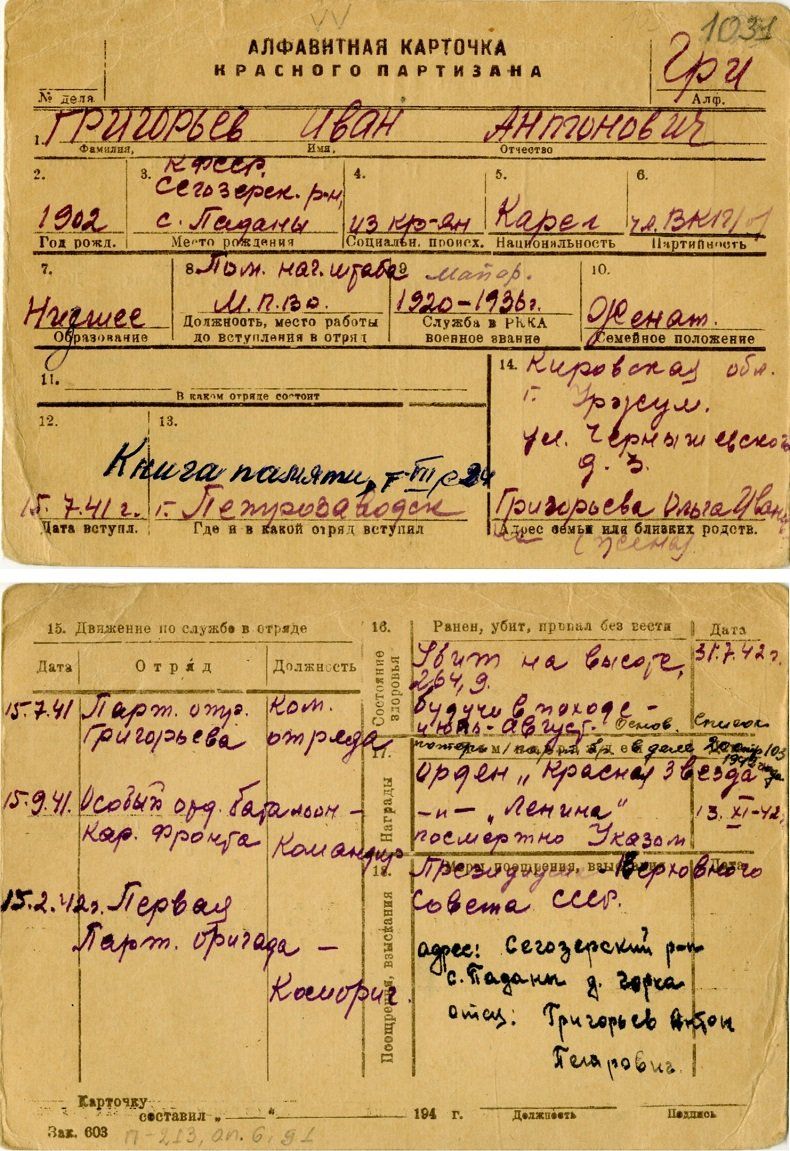 1031
АЛФАВИТНАЯ КАРТОЧКА
КРАСНОГО ПАРТИЗАНА
Гри
№ дела
Алф.
1. Григорьев Иван Антонович
Фамилия, Имя, Отчество
2. 3. 4. 5. 6.
КФССР.
Сегозерск. р-н,
1902 с. Паданы из кр-ян Карел чл. ВКП/б/
Год рожд. Место рождения Социальн. происх. Национальность Партийность
7. 8. Пом. нач. штаба 9 майор. 10.
Низшее М.П.ВО. 1920-1936г. Женат.
Образование Должность, место работы до вступления в отряд Служба в РККА военное звание Семейное положение
11.
В каком отряде состоит
14. Кировская обл.
г. Уржум.
ул. Чернышевского
д. 3.
12. 13.
Книга памяти, т. VII, с 24
15.7.41 г. г. Петрозаводск
Григорьева Ольга Иван
Дата вступл. Где и в какой отряд вступил Адрес семьи или близких родств.
на (жена)
15. Движение по службе в отряде
Дата Отряд Должность
15.7.41 Парт. отр. Григорьева Ком. отряда
15.9.41. Особый отд. батальон - Кар. Фронта Командир
15.2.42г. Первая Парт. бригада - Комбриг.
16. Состояние здоровья
Ранен, убит, пропал без вести Дата
Убит на высоте, 31.7.42г.
264,9.
будучи в походе -
июль-август. Основ. Список
потерь
в деле 20 стр 103
17. Награды
Орден „Красная Звезда
-и- „Ленина" 13.XI-42г.
посмертно Указом
18. Поощрения, взыскания
Меры поощрения, взыскания Дата
Президиума Верховного
Совета СССР.
адрес: Сегозерский р-н
с. Паданы д. Горка
отец: Григорьев Антон
Петрович.
Карточку
составил „ " 194 г. Должность Подпись
Зак. 603 П-213, оп. 6, д1